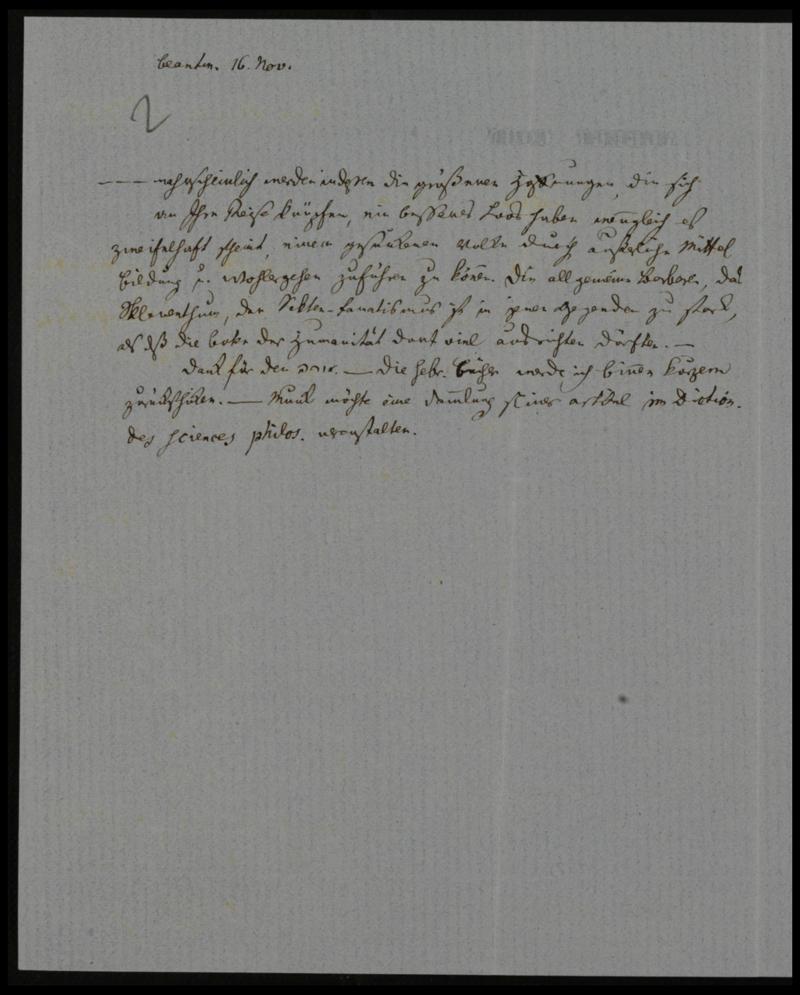 beantw. 16. Nov.
2
— — wahrscheinlich werden indessen die größeren Hoffnungen, die sich
an Ihre Reise knüpfen, ein besseres Loos haben, wenngleich es
zweifelhaft scheint, einem gesunkenen Volke durch äußerliche Mittel
Bildung u. Wohlergehen zuführen zu können. Die allgemeine Barbarei, das
Sklaventhum, der Sekten-Fanatismus ist in jenen Gegenden zu stark,
als daß die Boten der Humanität dort viel ausrichten dürften. —
Dank für den — Die hebr. Bücher werde ich binnen kurzem
zurückschicken. — Munk möchte eine Sammlung seiner Artikel im Diction.
des sciences philos. veranstalten.